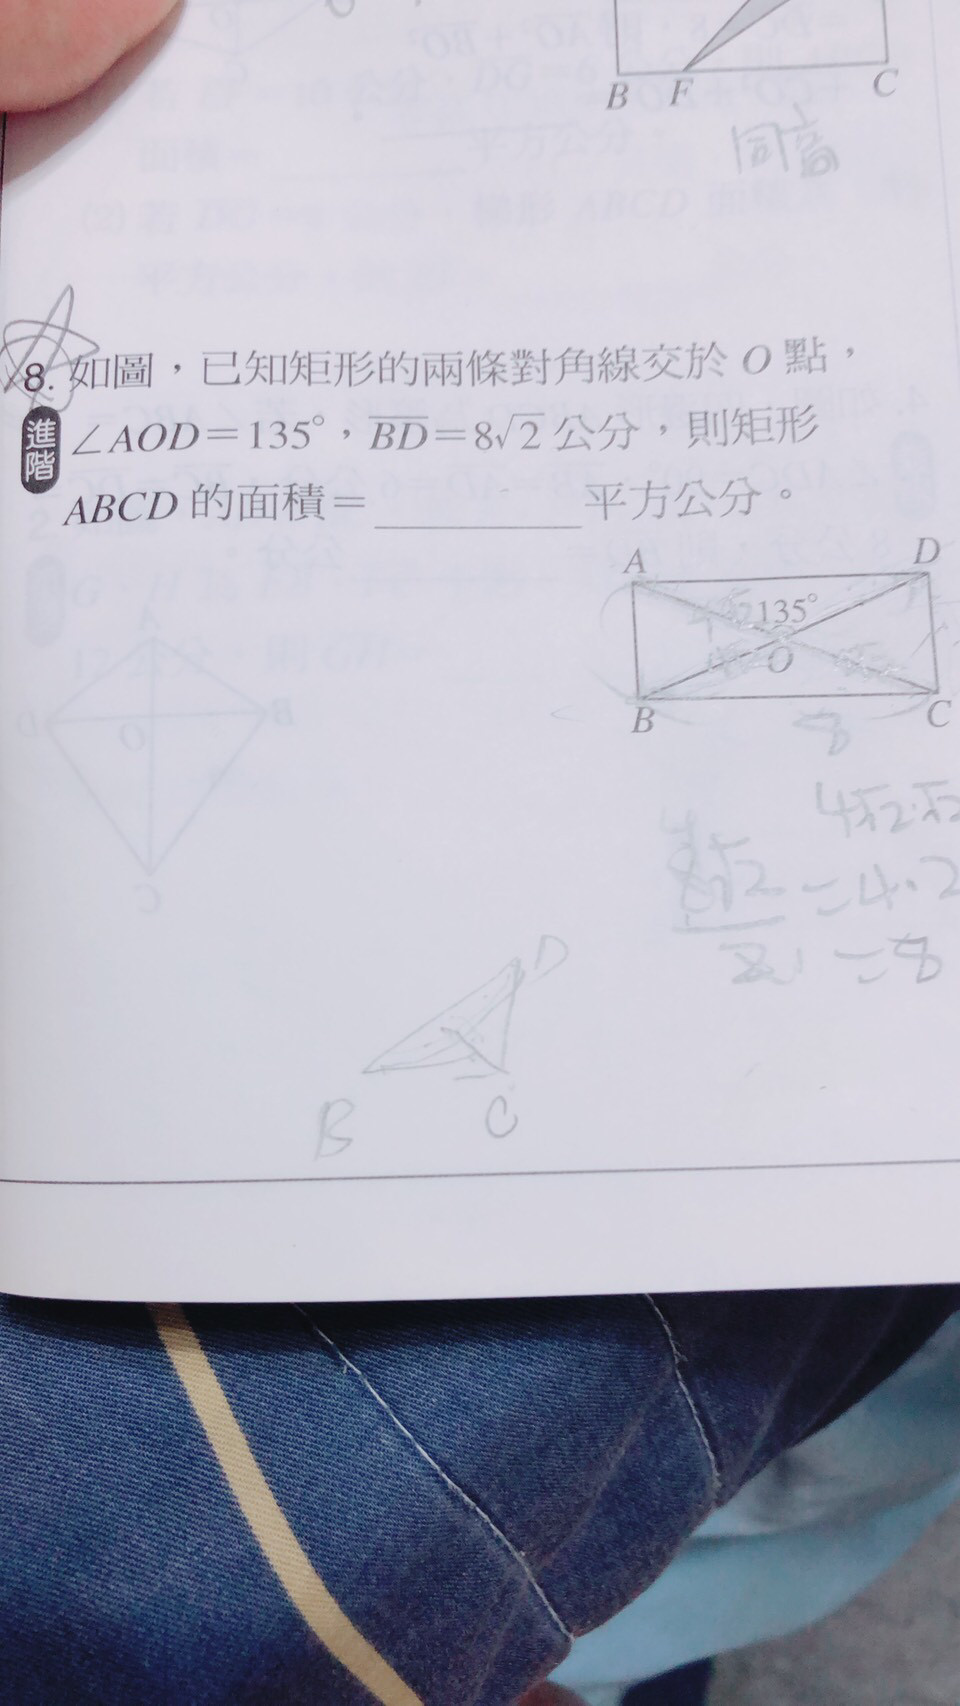 B F C
同高
8. 如圖，已知矩形的兩條對角線交於 O 點，
進階 ∠AOD＝135°，BD＝8√2 公分，則矩形
ABCD 的面積＝__________平方公分。
A D
135°
O
B C
8
4√2·√2
8√2 =4·2
2 =8
D
B C